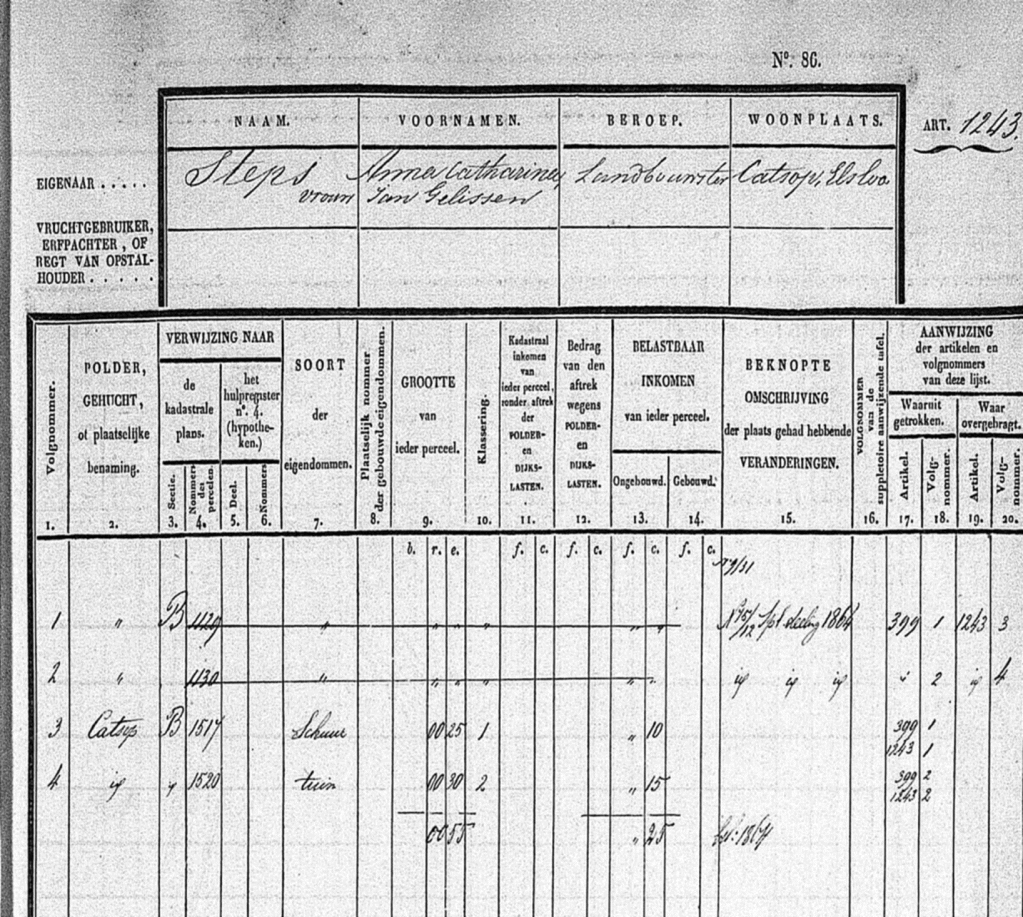 Nº. 86.
NAAM. VOORNAMEN. BEROEP. WOONPLAATS.
ART. 1243.
EIGENAAR . . . . .
Steps Anna Catharina, Landbouwster Catsop, Elsloo
vrouw Jan Gelissen
VRUCHTGEBRUIKER,
ERFPACHTER, OF
REGT VAN OPSTAL-
HOUDER . . . . .
Volgnommer.
POLDER,
GEHUCHT,
of plaatselijke
benaming.
VERWIJZING NAAR
de
kadastrale
plans.
het
hulpregister
nº. 4.
(hypothe-
ken.)
Sectie.
Nommers
des
perceelen.
Deel.
Nommers
SOORT
der
eigendommen.
Plaatselijk nommer
der gebouwde eigendommen.
GROOTTE
van
ieder perceel.
Klassering.
Kadastraal
inkomen
van
ieder perceel,
zonder aftrek
der
POLDER-
EN
DIJKS-
LASTEN.
Bedrag
van den
aftrek
wegens
POLDER-
en
DIJKS-
LASTEN.
BELASTBAAR
INKOMEN
van ieder perceel.
Ongebouwd. Gebouwd.
BEKNOPTE
OMSCHRIJVING
der plaats gehad hebbende
VERANDERINGEN.
VOLGNOMMER
van de
suppletoire aanwijzende tafel.
AANWIJZING
der artikelen en
volgnommers
van deze lijst.
Waaruit
getrokken.
Waar
overgebragt.
Artikel.
Volg-
nommer.
Artikel.
Volg-
nommer.
1. 2. 3. 4. 5. 6. 7. 8. 9. 10. 11. 12. 13. 14. 15. 16. 17. 18. 19. 20.
b. r. e. f. c. f. c. f. c. f. c.
1 " B 1129 " " " " " " 1864 399 1 1243 3
2 " 1130 " " " " " " id id id " 2 id 4
3 Catsop B 1517 Schuur 00 25 1 " 10 399 1
1243 1
4 id " 1520 tuin 00 30 2 " 15 399 2
1243 2
00 55 " 25 1864